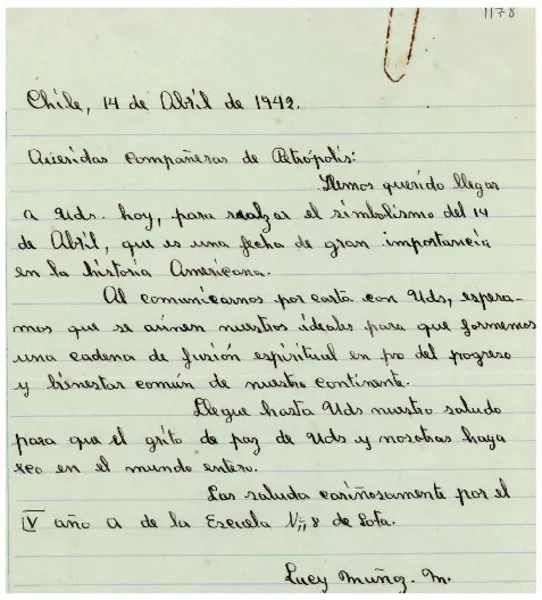 1178
Chile, 14 de Abril de 1942.
Queridas compañeras de Petrópolis:
Hemos querido llegar
a Uds. hoy, para realzar el simbolismo del 14
de Abril, que es una fecha de gran importancia
en la historia Americana.
Al comunicarnos por carta con Uds, espera-
mos que se aúnen nuestros ideales para que formemos
una cadena de fusión espiritual en pro del progreso
y bienestar común de nuestro continente.
Llegue hasta Uds nuestro saludo
para que el grito de paz de Uds y nosotras haga
eco en el mundo entero.
Las saluda cariñosamente por el
IV año A de la Escuela N° 8 de Lota.
Lucy Muñoz. M.